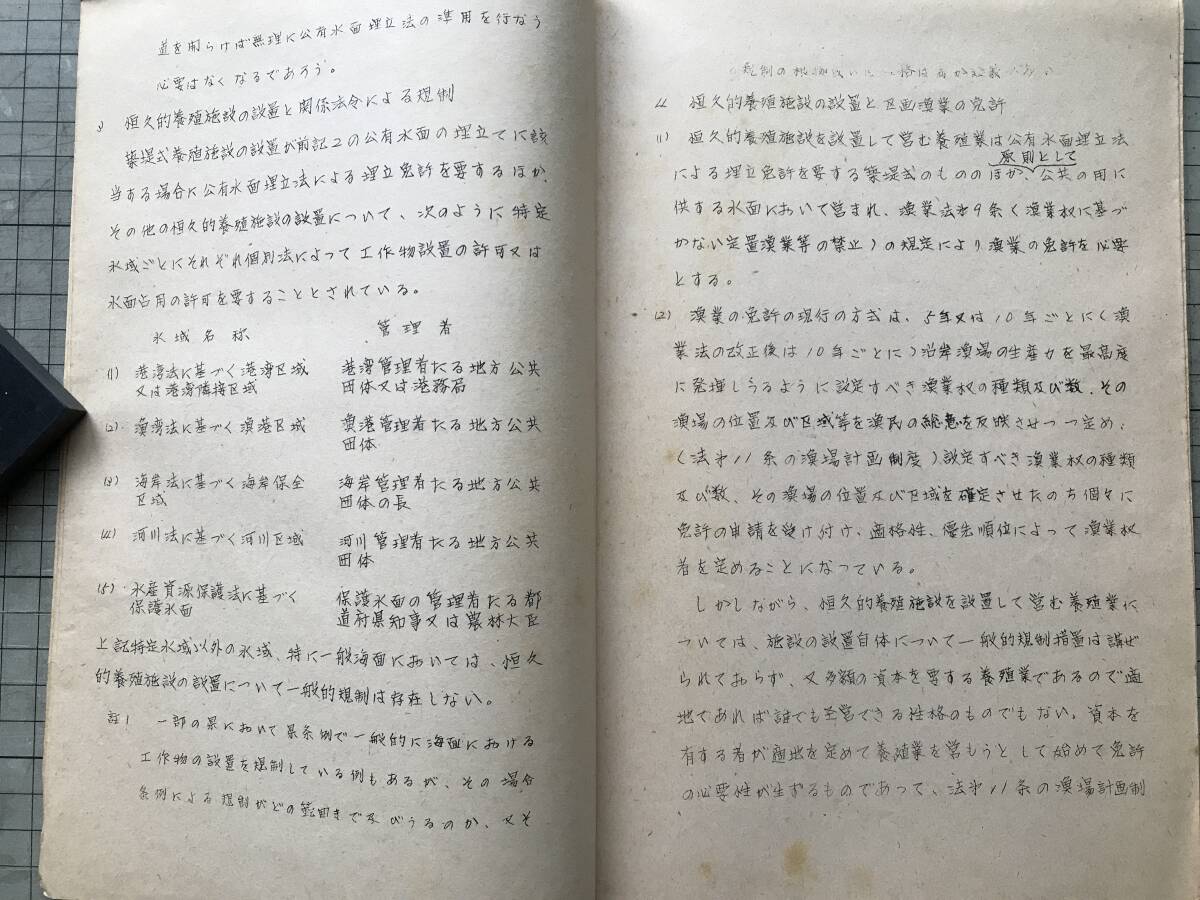 道を開らけば無理に公有水面埋立法の準用を行なう
必要はなくなるであろう。
3 恒久的養殖施設の設置と関係法令による規制
築堤式養殖施設の設置が前記2の公有水面の埋立てに該
当する場合に公有水面埋立法による埋立免許を要するほか、
その他の恒久的養殖施設の設置について、次のように特定
水域ごとにそれぞれ個別法によって工作物設置の許可又は
水面占用の許可を要することとされている。
水域名称 管理者
(1) 港湾法に基づく港湾区域 港湾管理者たる地方公共
又は港湾隣接区域 団体又は港務局
(2) 漁港法に基づく漁港区域 漁港管理者たる地方公共
団体
(3) 海岸法に基づく海岸保全 海岸管理者たる地方公共
区域 団体の長
(4) 河川法に基づく河川区域 河川管理者たる地方公共
団体
(5) 水産資源保護法に基づく 保護水面の管理者たる都
保護水面 道府県知事又は農林大臣
上記特定水域以外の水域、特に一般海面においては、恒久
的養殖施設の設置について一般的規制は存在しない。
註1 一部の県において県条例で一般的に海面における
工作物の設置を規制している例もあるが、その場合
条例による規制がどの範囲まで及びうるのか、又そ
規制の根拠
4 恒久的養殖施設の設置と区画漁業の免許
(1) 恒久的養殖施設を設置して営む養殖業は公有水面埋立法
原則として
による埋立免許を要する築堤式のもののほか、公共の用に
供する水面において営まれ、漁業法第9条(漁業权に基づ
かない定置漁業等の禁止)の規定により漁業の免許を必要
とする。
(2) 漁業の免許の現行の方式は、5年又は10年ごとに(漁
業法の改正後は10年ごとに)沿岸漁場の生産力を最高度
に発揮しうるように設定すべき漁業权の種類及び数、その
漁場の位置及び区域等を漁民の総意を反映させつつ定め、
(法第11条の漁場計画制度)設定すべき漁業权の種類
及び数、その漁場の位置及び区域を確定させたのち個々に
免許の申請を受け付け、適格性、優先順位によって漁業权
者を定めることになっている。
しかしながら、恒久的養殖施設を設置して営む養殖業に
ついては、施設の設置自体について一般的規制措置は講ぜ
られておらず、又多額の資本を要する養殖業であるので適
地であれば誰でも営できる性格のものでもない。資本を
有する者が適地を定めて養殖業を営もうとして始めて免許
の必要性が生ずるものであって、法第11条の漁場計画制